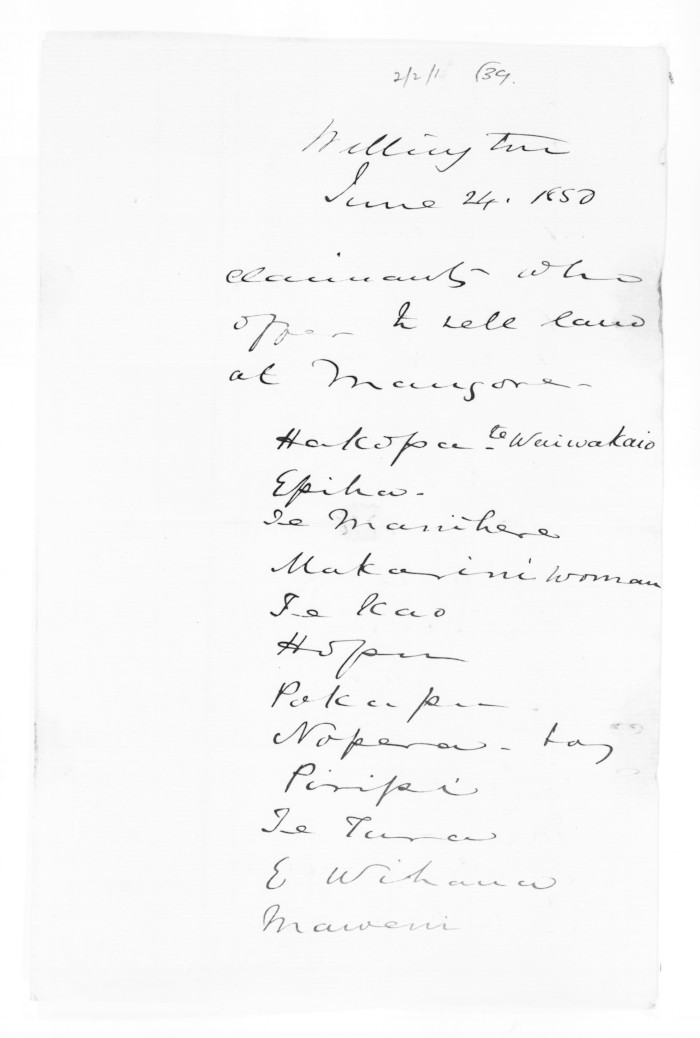 2/2/1 139.
Wellington
June 24. 1850
claimants who
offer to sell land
at Mangore
Hakopa te Waiwakaio
Epiha.
Te Manihera
Makarini woman
Te Kao
Hopu
Pokapu
Nopera - boy
Piripi
Te Tura
E Wihana
Maweni